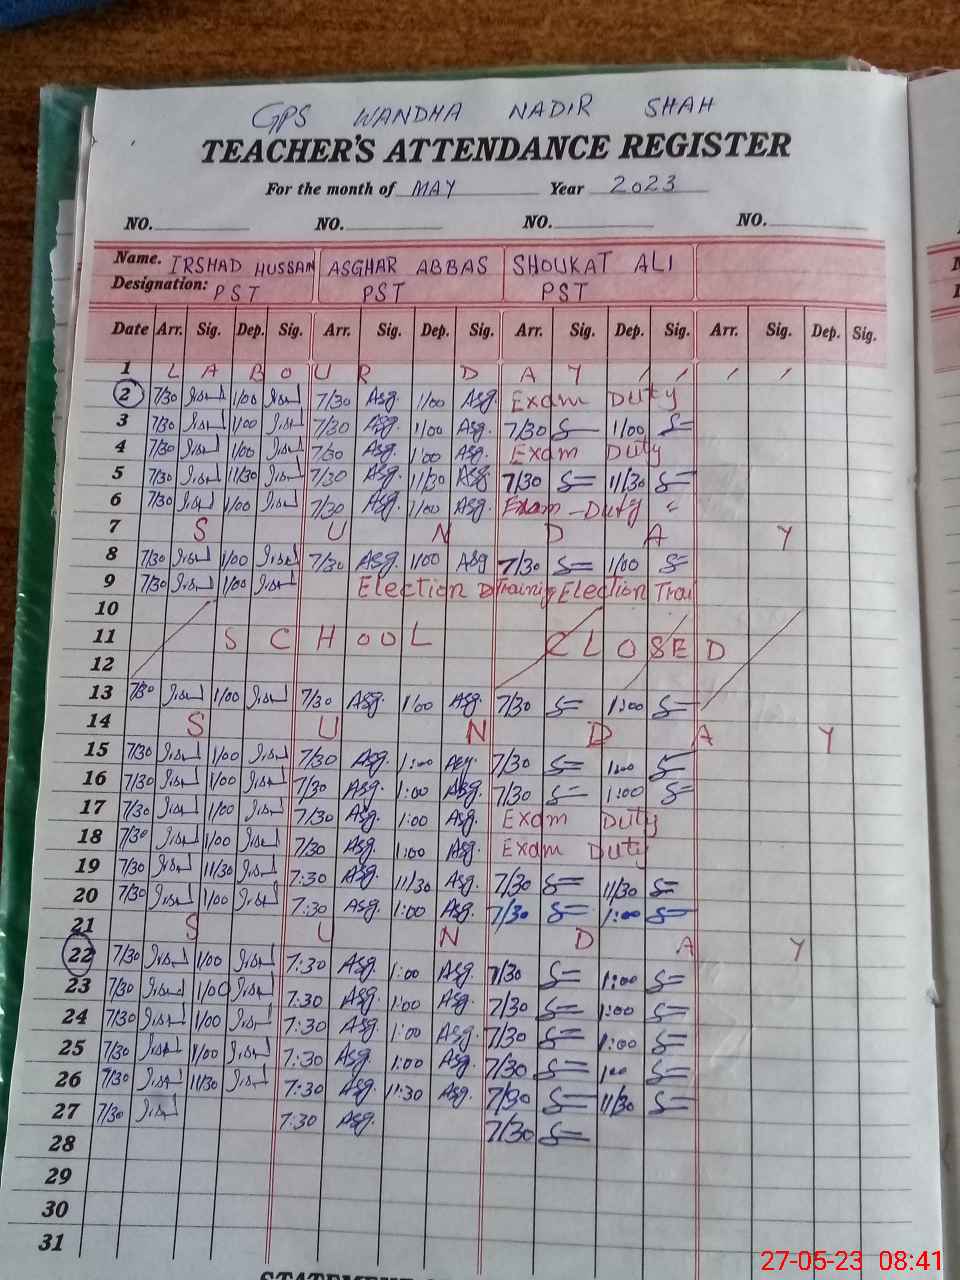 GPS WANDHA NADIR SHAH
TEACHER'S ATTENDANCE REGISTER
For the month of MAY Year 2023
NO. NO. NO. NO.
Name. IRSHAD HUSSAIN ASGHAR ABBAS SHOUKAT ALI
Designation: PST PST PST
Date Arr. Sig. Dep. Sig. Arr. Sig. Dep. Sig. Arr. Sig. Dep. Sig. Arr. Sig. Dep. Sig.
1 LABOUR DAY
2 7/30 1/00 7/30 Asg. 1/00 Asg. Exam Duty
3 7/30 1/00 7/30 Asg. 1/00 Asg. 7/30 1/00
4 7/30 1/00 7/30 Asg. 1:00 Asg. Exam Duty
5 7/30 11/30 7/30 Asg. 11/30 Asg 7/30 11/30
6 7/30 1/00 7/30 Asg. 1/00 Asg. Exam Duty
7 SUNDAY
8 7/30 1/00 7/30 Asg. 1/00 Asg 7/30 1/00
9 7/30 1/00 Election Training Election Trai
10
11 SCHOOL CLOSED
12
13 7/30 1/00 7/30 Asg. 1/00 Asg. 7/30 1:00
14 SUNDAY
15 7/30 1/00 7/30 Asg. 1:00 Asg. 7/30 1:00
16 7/30 1/00 7/30 Asg. 1:00 Asg. 7/30 1:00
17 7/30 1/00 7/30 Asg. 1:00 Asg. Exam Duty
18 7/30 1/00 7/30 Asg. 1:00 Asg. Exam Duty
19 7/30 11/30 7:30 Asg. 11/30 Asg. 7/30 11/30
20 7/30 1/00 7:30 Asg. 1:00 Asg. 7/30 1:00
21 SUNDAY
22 7/30 1/00 7:30 Asg. 1:00 Asg. 7/30 1:00
23 7/30 1/00 7:30 Asg. 1:00 Asg. 7/30 1:00
24 7/30 1/00 7:30 Asg. 1:00 Asg. 7/30 1:00
25 7/30 1/00 7:30 Asg. 1:00 Asg. 7/30 1:00
26 7/30 11/30 7:30 Asg. 11:30 Asg. 7/30 11/30
27 7/30 7:30 Asg. 7/30
28
29
30
31
27-05-23 08:41